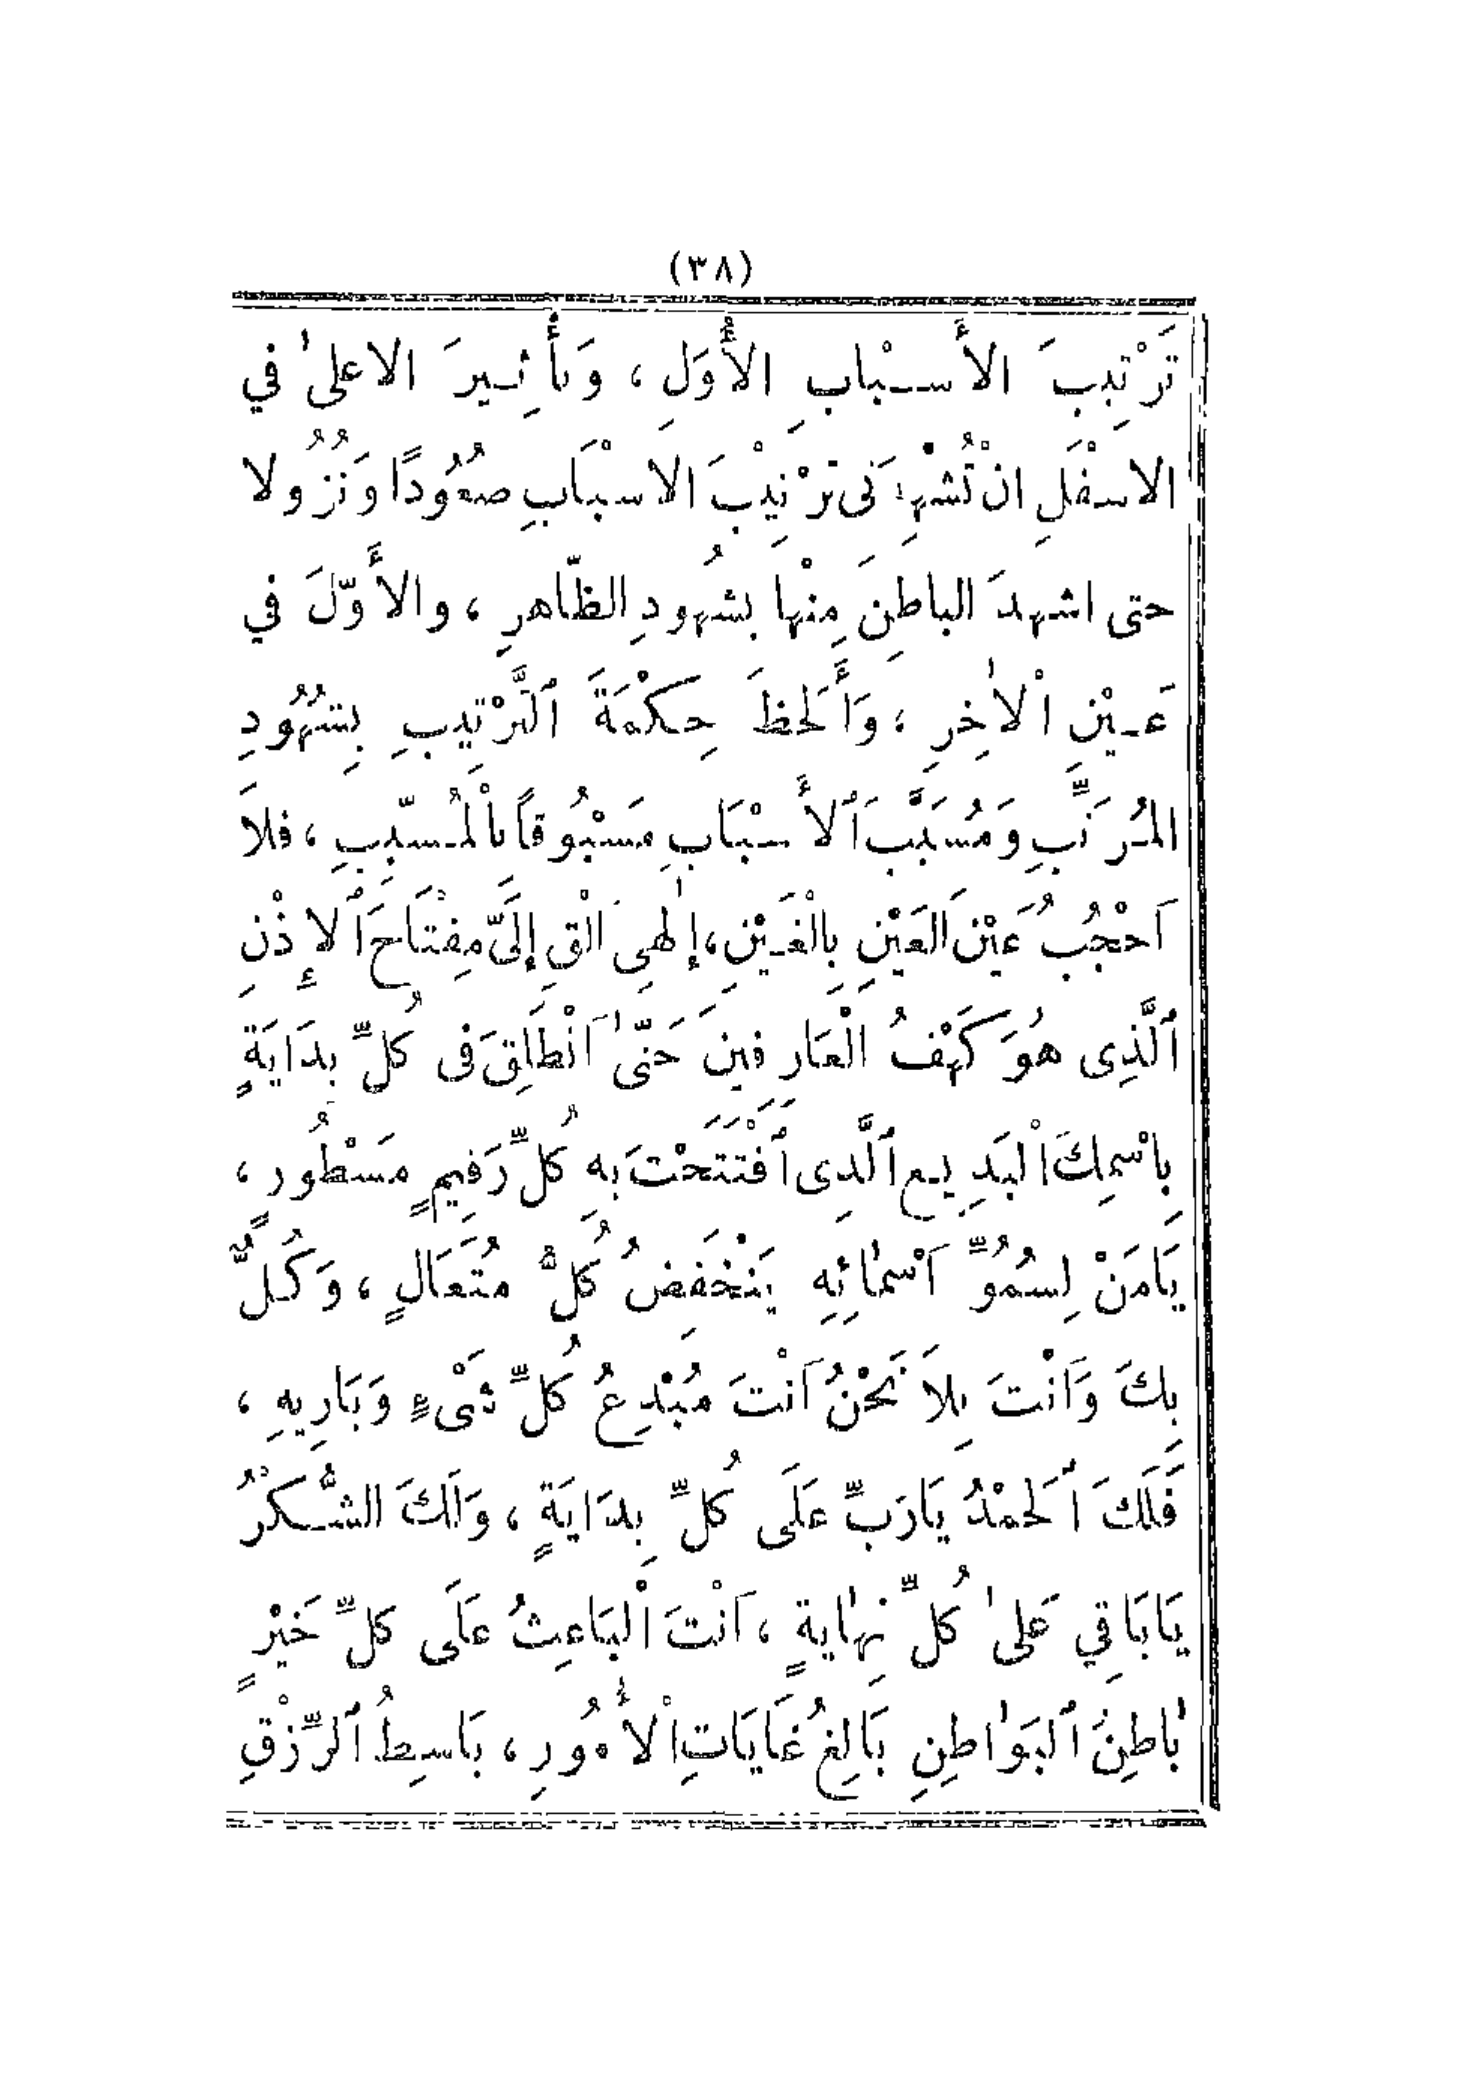 (٣٨)
تَرْتِيبَ الأَسْبابِ الأُوَلِ ، وَتأْثِيرَ الاعلىٰ في
الاسْفَلِ انْ تُشْهِدَنِى تَرْتِيْبَ الاَسْبَابِ صُعُودًا وَنُزُولا
حتى اشهدَ الباطِنَ مِنْها بشُهودِ الظّاهرِ ، والأَوّلَ في
عَيْنِ اْلاٰخِرِ ، وَأَلحَظَ حِكْمَةَ ٱلتَّرْتِيبِ بِشُهُودِ
المُرَتِّبِ وَمُسَبَّبَ ٱلأَسْبَابِ مَسْبُوقاً باْلمُسَبِّبِ ، فلاَ
اَحْجُبُ عَيْنَ العَيْنِ بِالْغَيْنِ ، إلٰهِى اَلْقِ إلَىَّ مِفْتَاحَ ٱلإِذْنِ
ٱلَّذِى هُوَ كَهْفُ الْعَارِفينَ حَتّىٰ اَنْطَلِقَ فى كُلِّ بِدَايَةٍ
بِاسْمِكَ اْلبَدِيعِ ٱلَّذِى ٱفْتَتَحْتَ بِهِ كُلَّ رَقِيمٍ مَسْطُورٍ ،
يَامَنْ لِسُمُوِّ اَسْمٰائِهِ يَنْخَفِضُ كُلُّ مُتَعَالٍ ، وَكُلٌّ
بِكَ وَاَنْتَ بِلاَ نَحْنُ اَنْتَ مُبْدِعُ كُلِّ شَىْءٍ وَبَارِيهِ ،
فَلَكَ ٱلحَمْدُ يَارَبِّ عَلَى كُلِّ بِدَايَةٍ ، وَلَكَ الشُّكْرُ
يَابَاقِي عَلىٰ كُلِّ نِهٰايةٍ ، اَنْتَ اْلبَاعِثُ عَلَى كلِّ خَيْرٍ
بٰاطِنُ ٱلبَوٰاطِنِ بَالِغُ غَايَاتِ اْلأُمُورِ ، بَاسِطُ ٱلرِّزْقِ